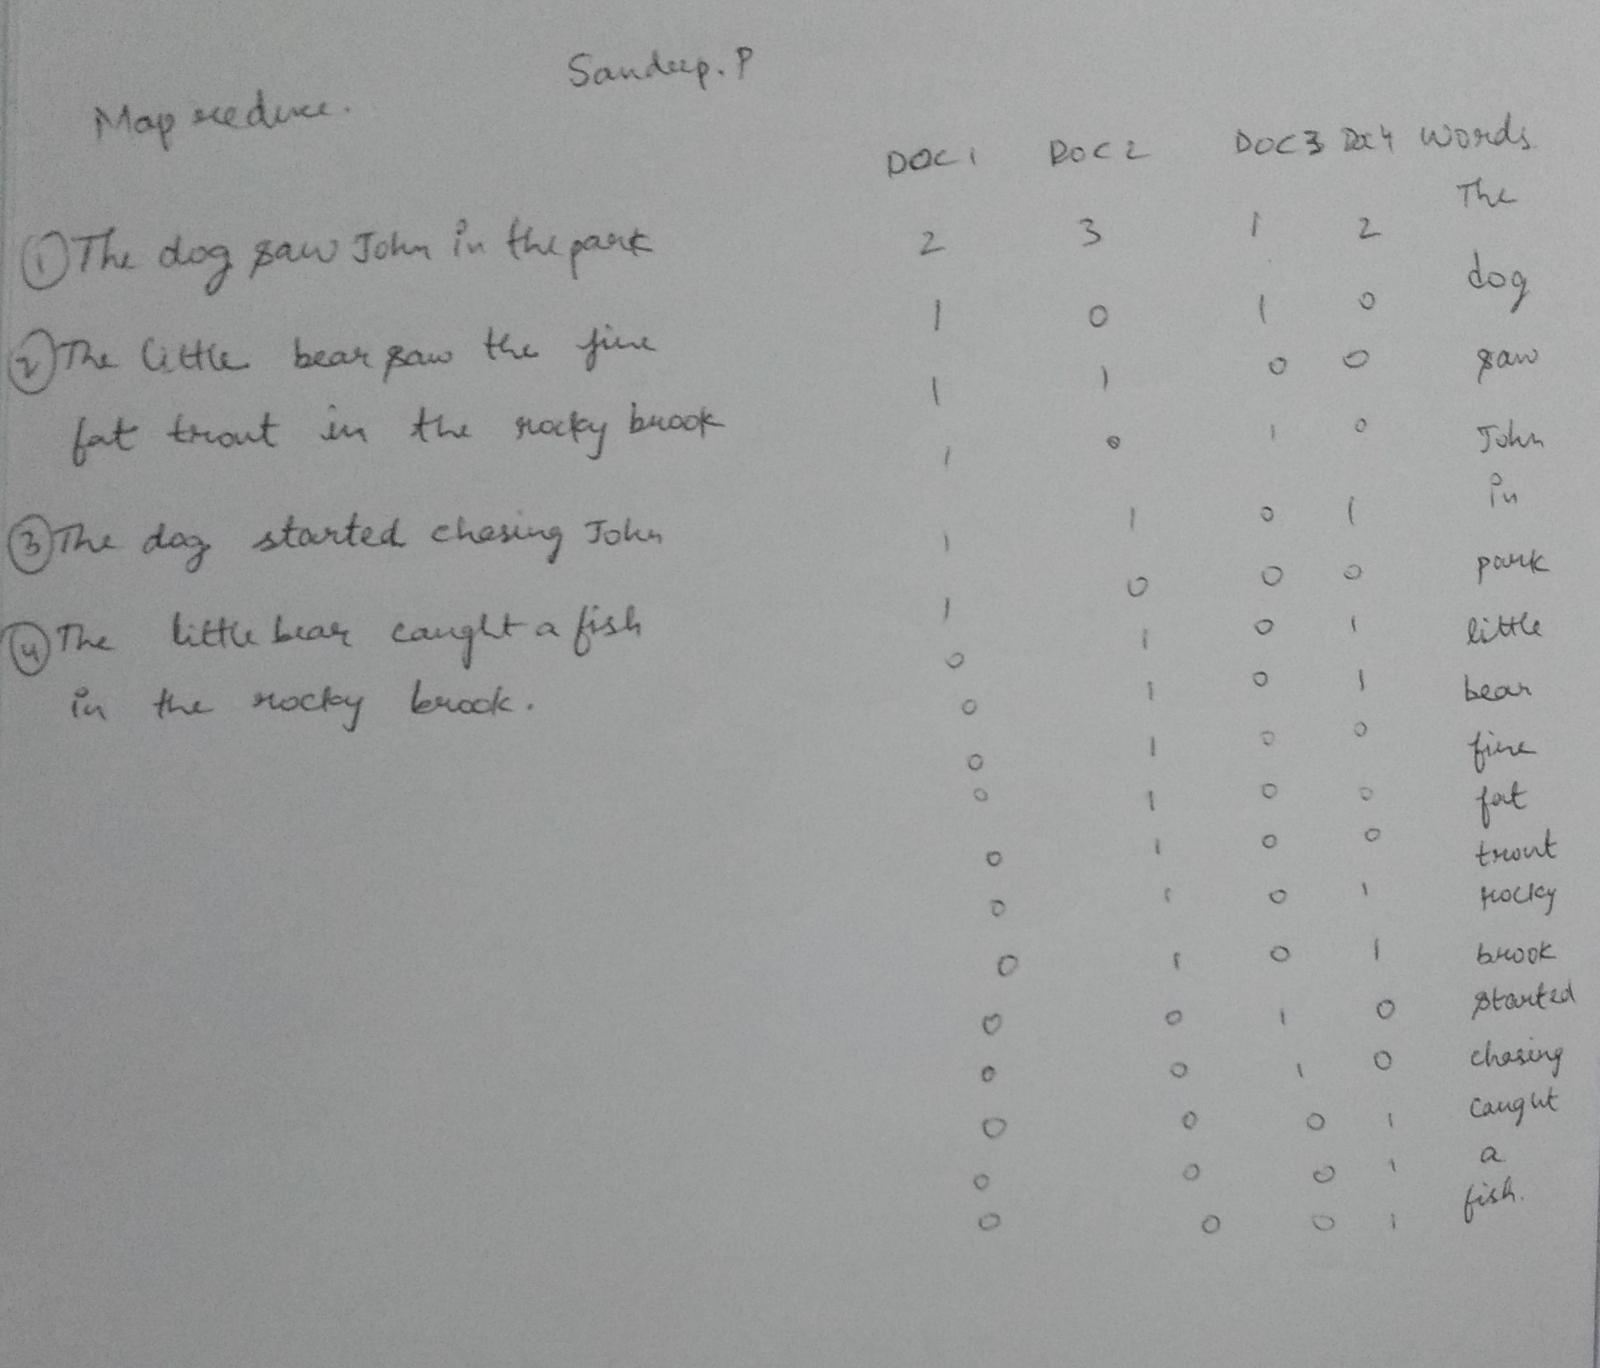 Sandeep. P
Map reduce.
DOC 1 DOC 2 DOC 3 DOC 4 Words
① The dog saw John in the park
② The little bear saw the fine
fat trout in the rocky brook
③ The dog started chasing John
④ The little bear caught a fish
in the rocky brook.
2 3 1 2 The
1 0 1 0 dog
1 1 0 0 saw
1 0 1 0 John
1 1 0 1 in
1 0 0 0 park
0 1 0 1 little
0 1 0 1 bear
0 1 0 0 fine
0 1 0 0 fat
0 1 0 0 trout
0 1 0 1 rocky
0 1 0 1 brook
0 0 1 0 started
0 0 1 0 chasing
0 0 0 1 caught
0 0 0 1 a
0 0 0 1 fish.